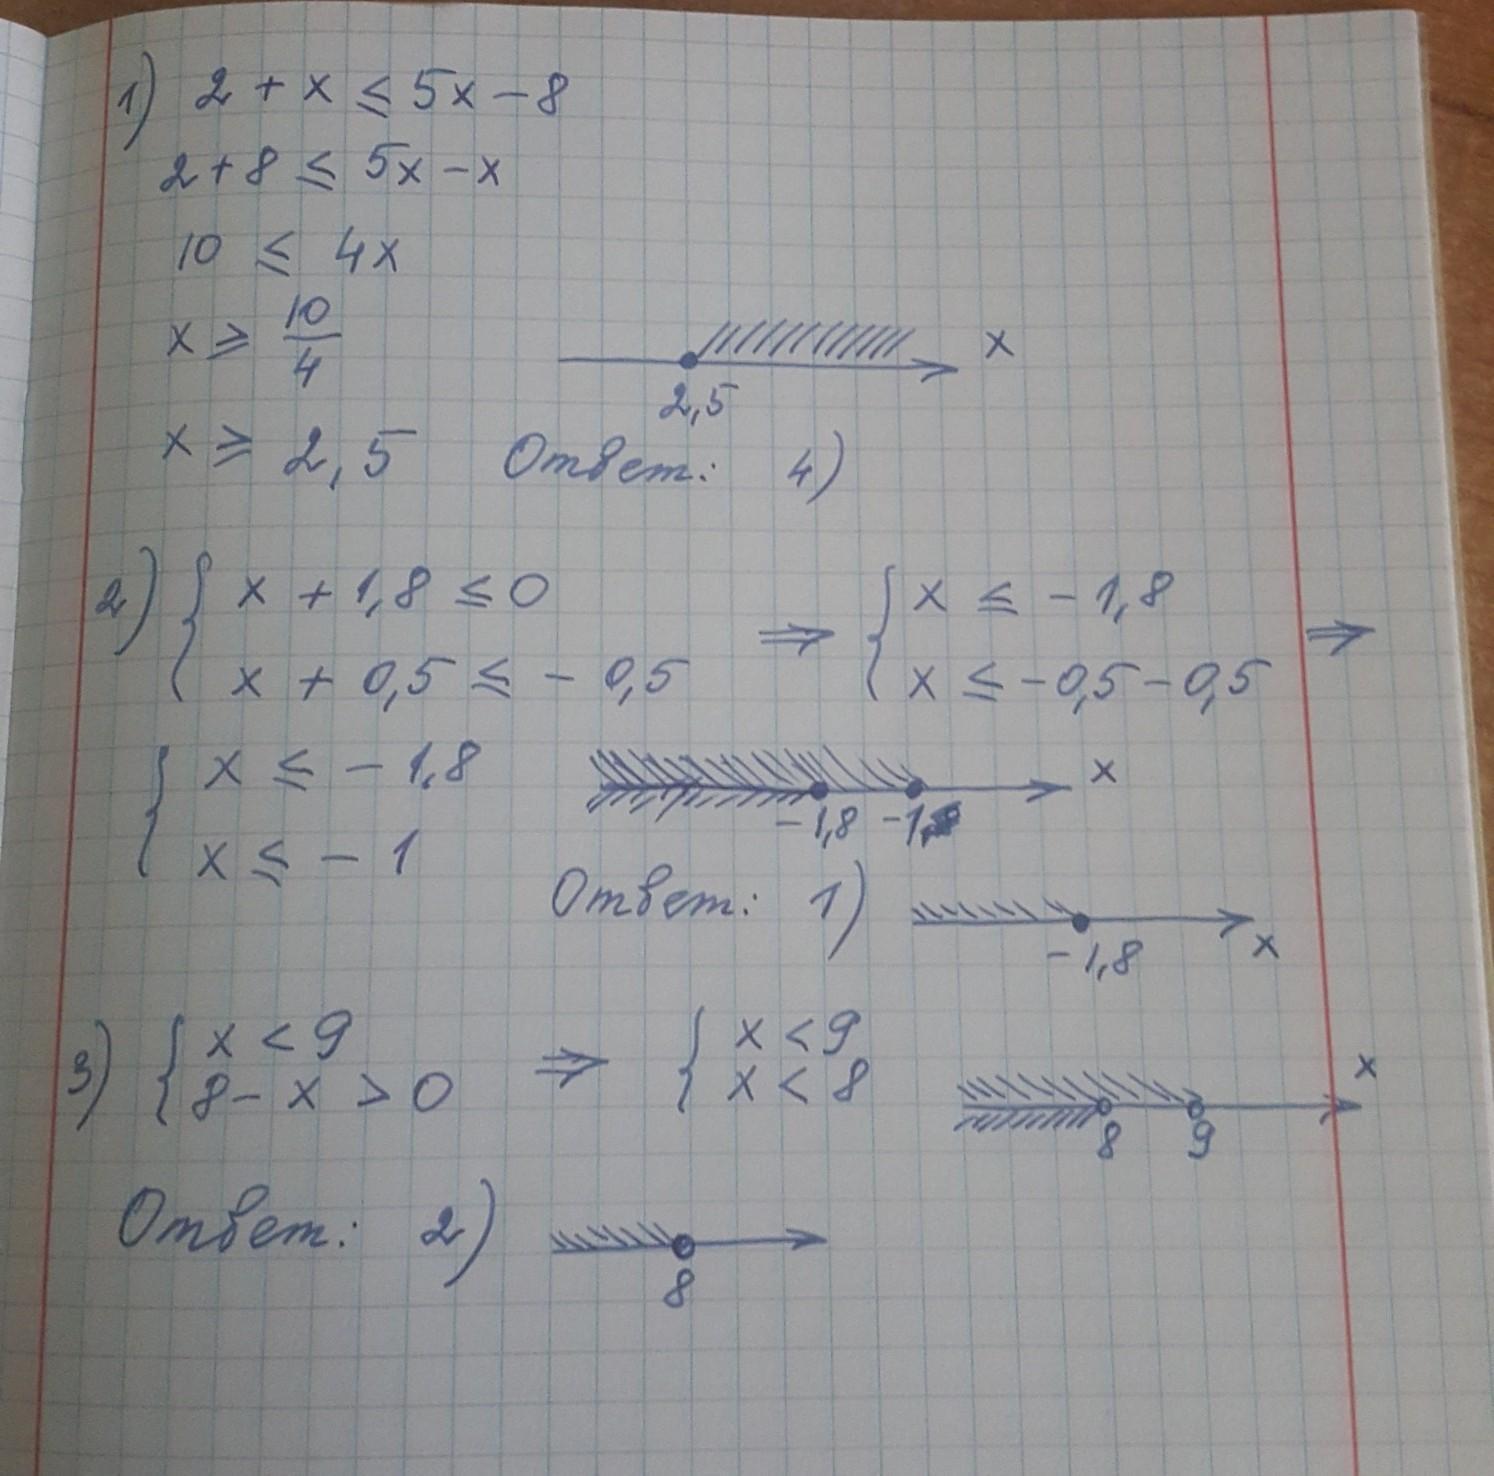 1) 2 + x ≤ 5x − 8
2 + 8 ≤ 5x − x
10 ≤ 4x
x ≥ 10/4
x
2,5
x ≥ 2,5 Ответ: 4)
2) { x + 1,8 ≤ 0 ⇒ { x ≤ −1,8 ⇒
x + 0,5 ≤ −0,5 x ≤ −0,5 − 0,5
{ x ≤ −1,8 x
x ≤ −1 −1,8
Ответ: 1)
−1,8 x
3) { x < 9 ⇒ { x < 9 x
8 − x > 0 x < 8 8 9
Ответ: 2)
8